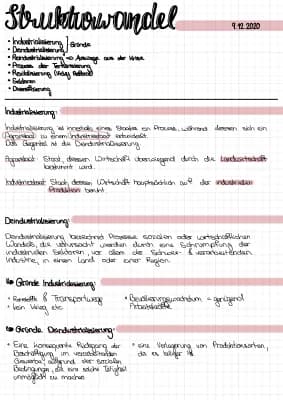 Strukturwandel
9.12.2020
• Industrialisierung
• Deindustrialisierung
Gründe
• Reindustrialisierung → Auswege aus der Krise
• Prozess der Tertiärisierung
• Revitalisierung
• Sektoren
• Diversifizierung
Industrialisierung:
Industrialisierung ist innerhalb eines Staates ein Prozess, während dessen sich ein
Agrarstaat zu einem Industriestaat entwickelt.
Das Gegenteil ist die Deindustrialisierung.
Agrarstaat: Staat, dessen Wirtschaft überwiegend durch die Landwirtschaft
bestimmt wird.
Industriestaat: Staat, dessen Wirtschaft hauptsächlich auf der industriellen
Produktion beruht.
Deindustrialisierung:
Deindustrialisierung bezeichnet Prozesse sozialen oder wirtschaftlichen
Wandels, die verursacht werden durch eine Schrumpfung der
industriellen Sektoren, vor allem der Schwer- & verarbeitenden
Industrie, in einem Land oder einer Region.
Gründe Industrialisierung:
• Rohstoffe & Transportwege
• kein Krieg etc.
• Bevölkerungswachstum = genügend
Arbeitskräfte
Gründe Deindustrialisierung:
• Eine konsequente Rückgang der
Beschäftigung im verarbeitenden
Gewerbe, aufgrund der sozialen
Bedingungen, die eine solche Tätigkeit
unmöglich zu machen
• eine Verlagerung von Produktionsorten,
da es billiger ist